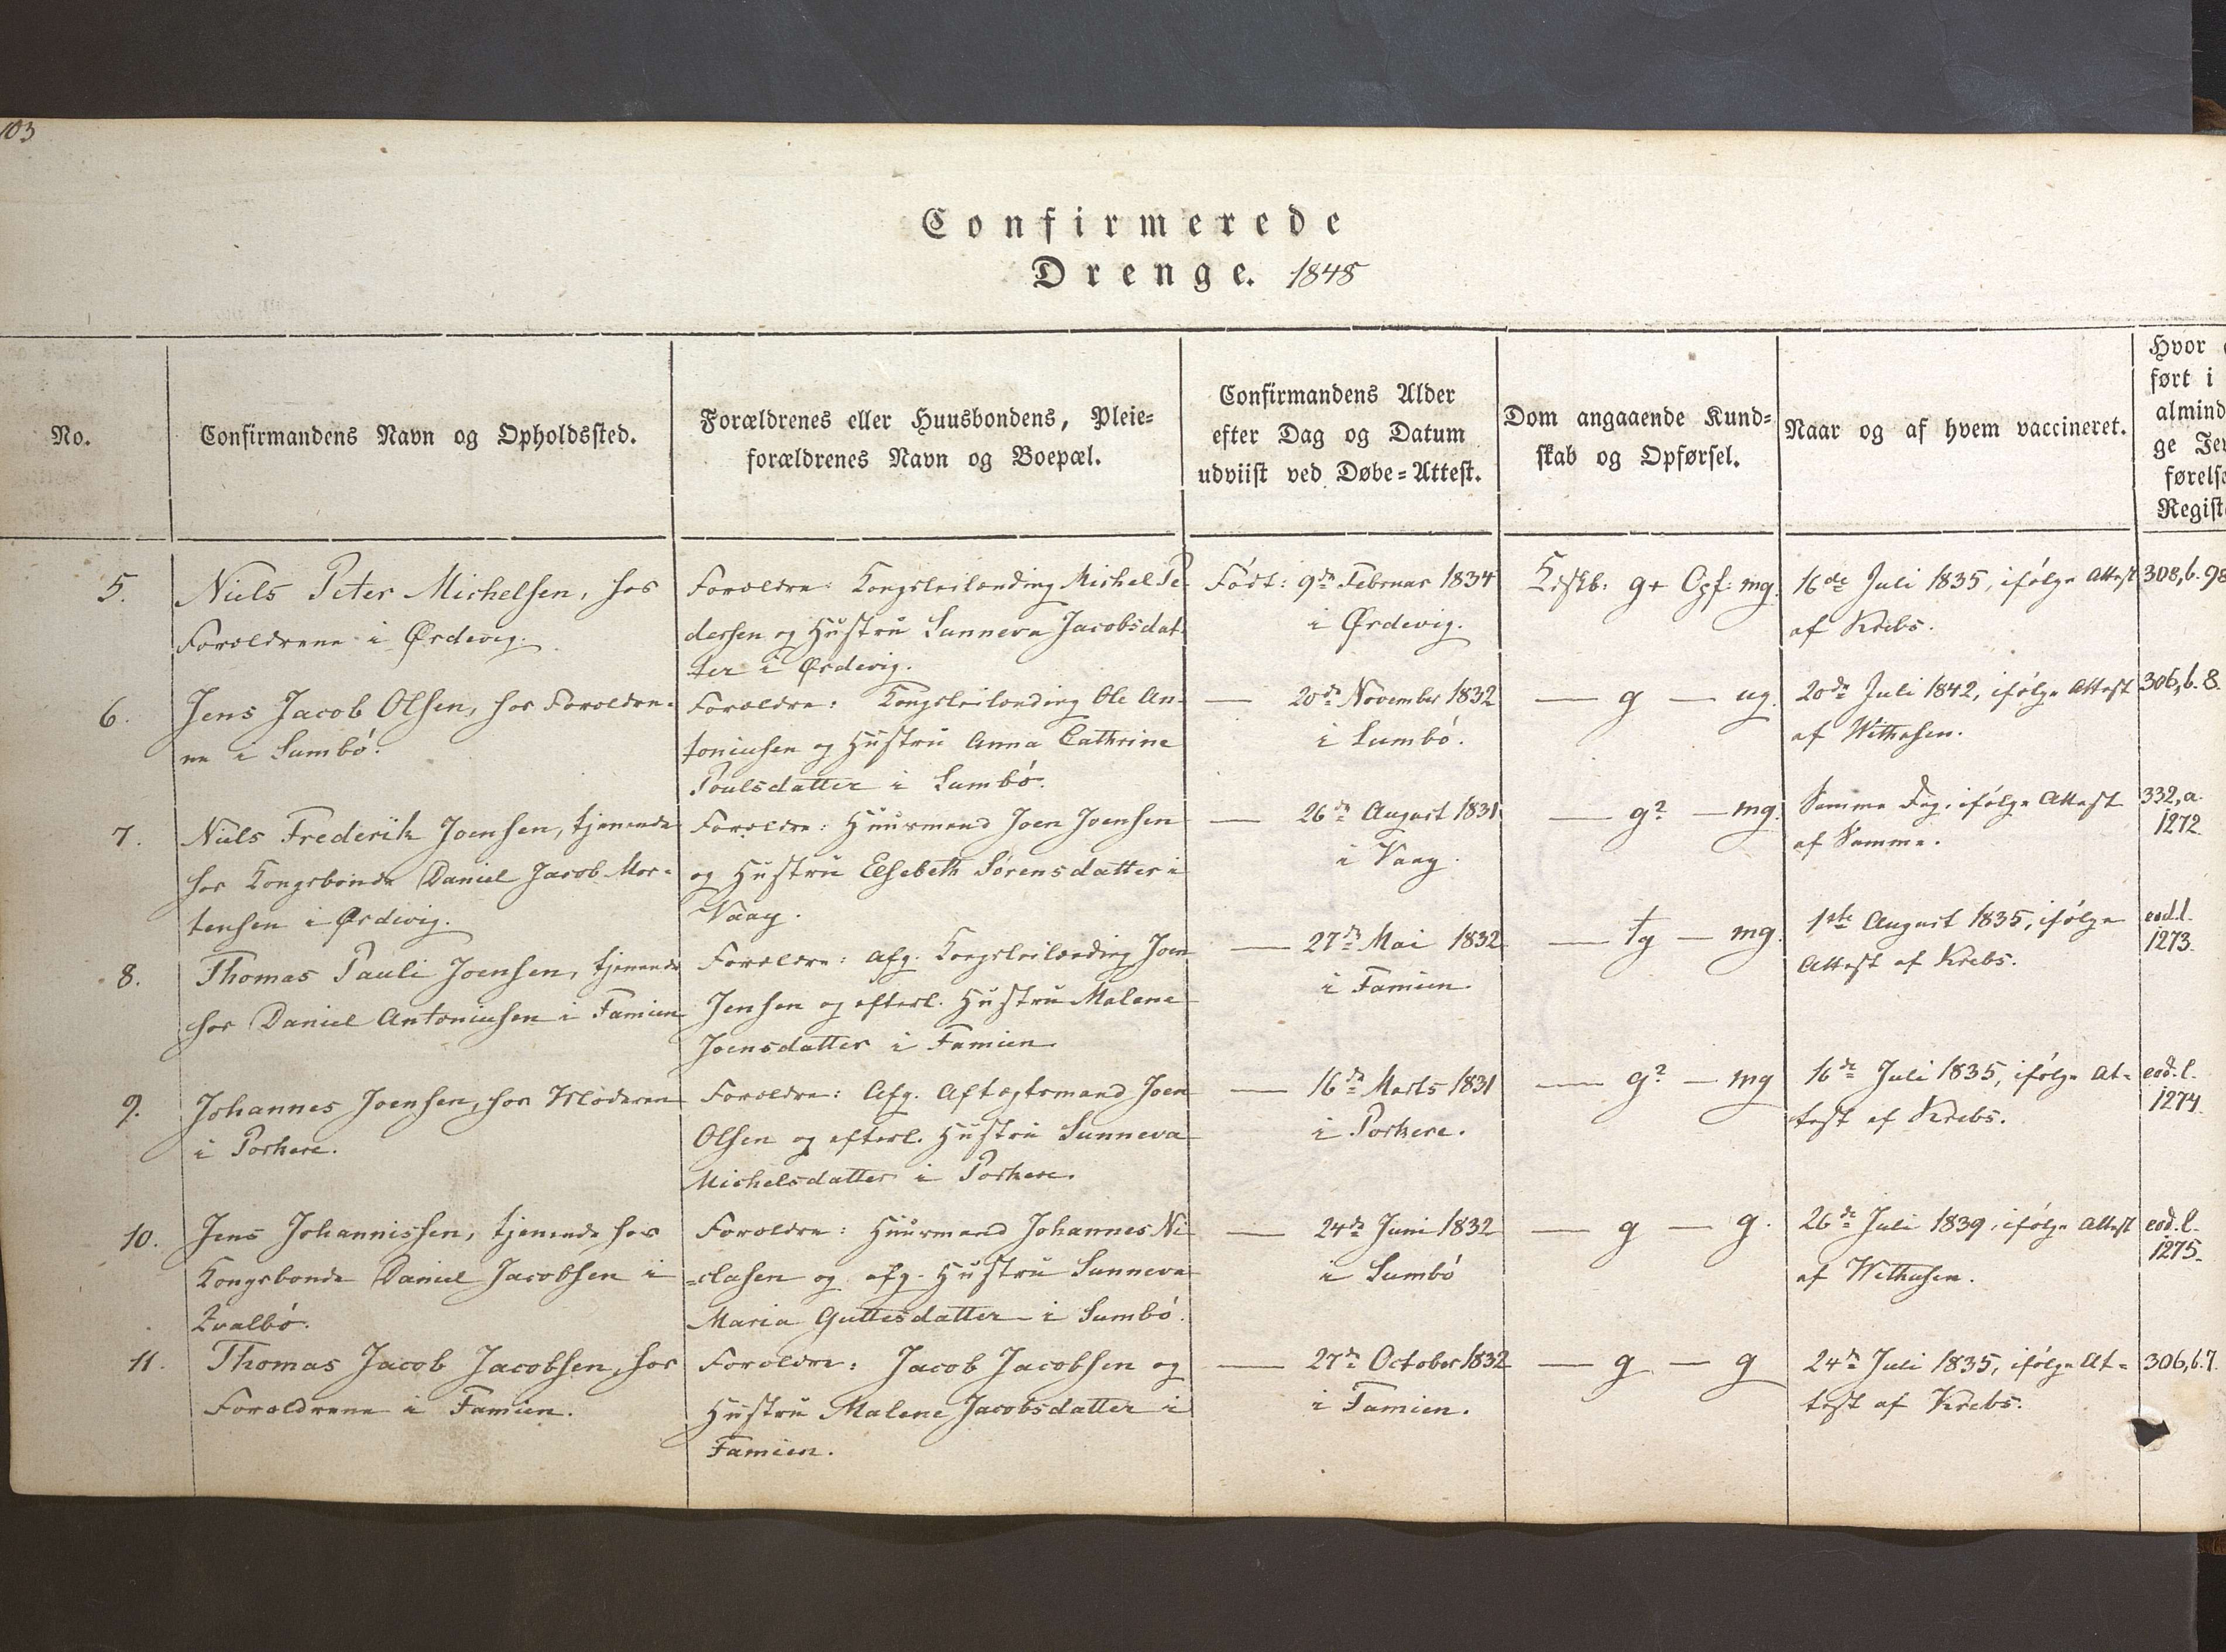 103
Confirmerede
Drenge. 1848
No.
Confirmandens Navn og Opholdssted.
Forældrenes eller Huusbondens, Pleie=
forældrenes Navn og Boepæl.
Confirmandens Alder
efter Dag og Datum
udviist ved Døbe=Attest.
Dom angaaende Kund=
skab og Opførsel.
Naar og af hvem vaccineret.
Hvor
ført i
almind
ge Jev
førelse
Regist
5.
Niels Peter Michelsen, hos
Forældrene i Ørdevig.
Forældre: Kongsleilænding Michel Pe
dersen og Hustru Sunneva Jacobsdat
ter i Ørdevig.
Født: 9de Februar 1834
i Ørdevig.
Kdskb: g+ Opf: mg.
16de Juli 1835, ifølge Attest
af Krebs.
308, b. 98
6.
Jens Jacob Olsen, hos Forældre=
ne i Sumbø.
Forældre: Kongsleilænding Ole An=
toniusen og Hustru Anna Cathrine
Poulsdatter i Sumbø.
— 20de November 1832
i Sumbø.
— g — ug.
20de Juli 1842, ifølge Attest
af Withusen.
306, b. 8.
7.
Niels Frederik Joensen, tjenende
hos Kongsbonde Daniel Jacob Mor=
tensen i Ørdevig.
Forældre: Huusmand Joen Joensen
og Hustru Elsebeth Sørensdatter i
Vaag.
— 26de August 1831
i Vaag.
— g? — mg.
Samme Dag, ifølge Attest
af Samme.
332, a.
1272.
8.
Thomas Pauli Joensen, tjenende
hos Daniel Antoniusen i Famien
Forældre: Afg. Kongsleilænding Joen
Jensen og efterl. Hustru Malene
Joensdatter i Famien.
— 27de Mai 1832
i Famien.
— tg — mg.
1ste August 1835, ifølge
Attest af Krebs.
eod. l.
1273.
9.
Johannes Joensen, hos Moderen
i Porkere.
Forældre: Afg. Aftægtsmand Joen
Olsen og efterl. Hustru Sunneva
Michelsdatter i Porkere.
— 16de Marts 1831
i Porkere.
— g? — mg
16de Juli 1835, ifølge At=
test af Krebs.
eod. l.
1274.
10.
Jens Johannissen, tjenende hos
Kongsbonde Daniel Jacobsen i
Qvalbø.
Forældre: Huusmand Johannes Ni
=clasen og afg. Hustru Sunneva
Maria Guttesdatter i Sumbø.
— 24de Juni 1832
i Sumbø
— g — g.
26de Juli 1839, ifølge Attest
af Withusen.
eod. l.
1275.
11.
Thomas Jacob Jacobsen, hos
Forældrene i Famien.
Forældre: Jacob Jacobsen og
Hustru Malene Jacobsdatter i
Famien.
— 27de October 1832
i Famien.
— g — g
24de Juli 1835, ifølge At=
test af Krebs.
306, b. 7.